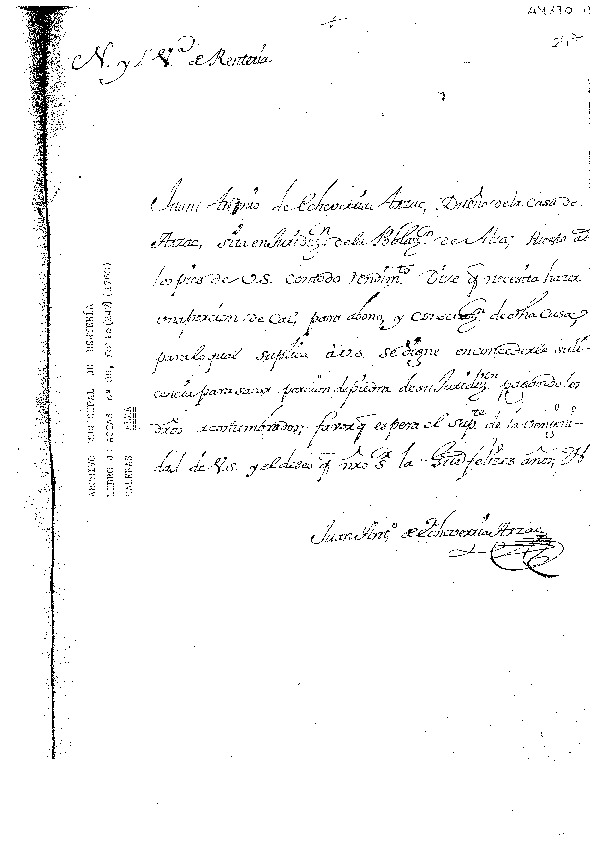 N. y L. V.ª de Rentería
Juan Anto de Echeverria Arzac, Dueño de la Casa de
Arzac, sita en Juridiz.n de la Poblaz.n de Alza; Puesto a
los pies de V.S. con todo rendim.to Dize q necesita hazer
una porcion de Cal, para abono, y de dha Casa,
para lo qual suplica a V.S. se digne en concederle su li-
cencia para sacar porcion de piedra de su Juridiz.n pagando los
dros acostumbrados; favor q espera el sup.te de la
dad de V.S. y el deseo q nro S.r la felizes años,
Juan Ant.o de Echeverria Arzac
ARCHIVO MUNICIPAL DE RENTERÍA
CALERAS ALZA